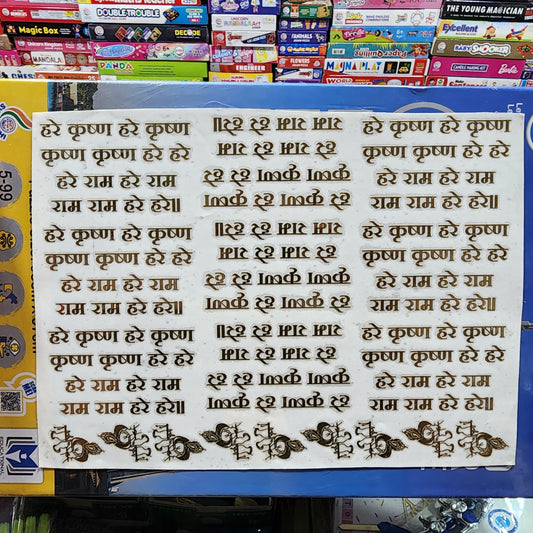 DOUBLE-TROUBLE
Magic Box
DECODE
MANDALA
PANDA
UNICORN
ANIMALS
FLOWERS
ENGINEER
MAGNA PLAY
Paper Quilling
WORLD
THE YOUNG MAGICIAN
Excellent
BABY SNOOKER
CANDLE MAKING KIT
Barbie
5-99
EDUCATIONAL
हरे कृष्ण हरे कृष्ण
कृष्ण कृष्ण हरे हरे
हरे राम हरे राम
राम राम हरे हरे॥
हरे कृष्ण हरे कृष्ण
कृष्ण कृष्ण हरे हरे
हरे राम हरे राम
राम राम हरे हरे॥
हरे कृष्ण हरे कृष्ण
कृष्ण कृष्ण हरे हरे
हरे राम हरे राम
राम राम हरे हरे॥
राम राम हरे हरे॥
हरे राम हरे राम
कृष्ण कृष्ण हरे हरे
हरे कृष्ण हरे कृष्ण
राम राम हरे हरे॥
हरे राम हरे राम
कृष्ण कृष्ण हरे हरे
हरे कृष्ण हरे कृष्ण
राम राम हरे हरे॥
हरे राम हरे राम
कृष्ण कृष्ण हरे हरे
हरे कृष्ण हरे कृष्ण
हरे कृष्ण हरे कृष्ण
कृष्ण कृष्ण हरे हरे
हरे राम हरे राम
राम राम हरे हरे॥
हरे कृष्ण हरे कृष्ण
कृष्ण कृष्ण हरे हरे
हरे राम हरे राम
राम राम हरे हरे॥
हरे कृष्ण हरे कृष्ण
कृष्ण कृष्ण हरे हरे
हरे राम हरे राम
राम राम हरे हरे॥